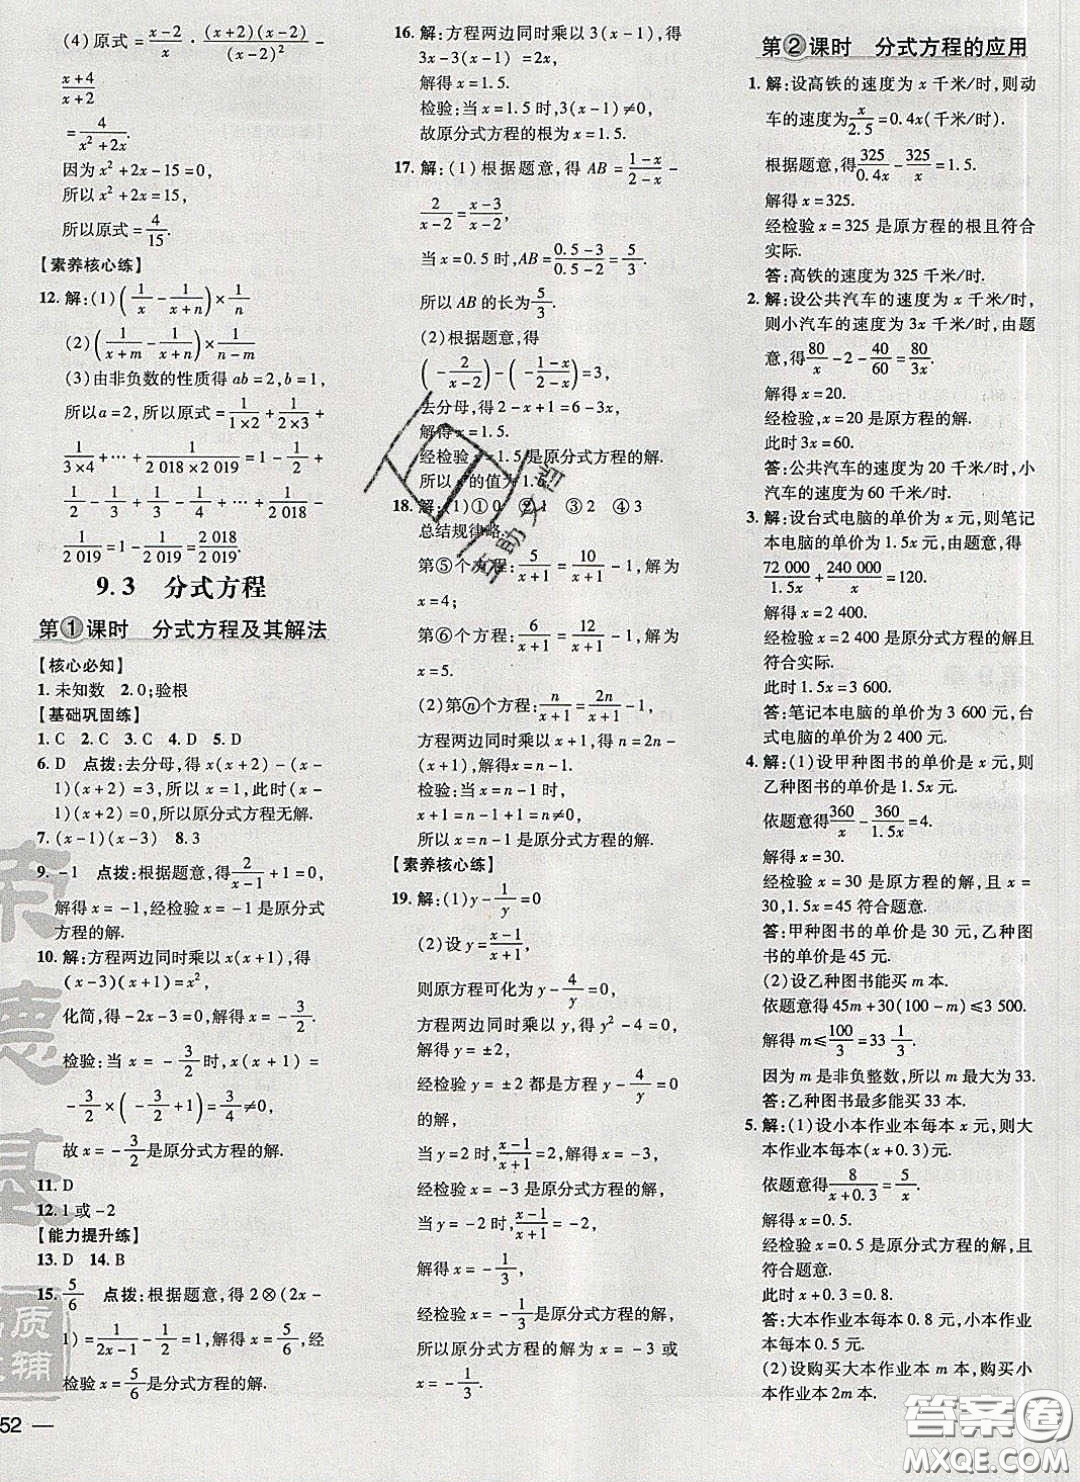 (4)原式=\frac{x-2}{x}·\frac{(x+2)(x-2)}{(x-2)^2}·
\frac{x+4}{x+2}
=\frac{4}{x^2+2x}.
因为x^2+2x-15=0,
所以x^2+2x=15,
所以原式=\frac{4}{15}.
【素养核心练】
12.解:(1)(\frac{1}{x}-\frac{1}{x+n})×\frac{1}{n}
(2)(\frac{1}{x+m}-\frac{1}{x+n})×\frac{1}{n-m}
(3)由非负数的性质得ab=2,b=1,
所以a=2,所以原式=\frac{1}{1×2}+\frac{1}{2×3}+
\frac{1}{3×4}+…+\frac{1}{2 018×2 019}=1-\frac{1}{2}+
\frac{1}{2}-\frac{1}{3}+\frac{1}{3}-\frac{1}{4}+…+\frac{1}{2 018}-
\frac{1}{2 019}=1-\frac{1}{2 019}=\frac{2 018}{2 019}.
9.3 分式方程
第①课时 分式方程及其解法
【核心必知】
1.未知数 2.0;验根
【基础巩固练】
1.C 2.C 3.C 4.D 5.D
6.D 点拨:去分母,得x(x+2)-(x-
1)(x+2)=3,解得x=1,此时(x-
1)(x+2)=0,所以原分式方程无解.
7.(x-1)(x-3) 8.3
9.-1 点拨:根据题意,得\frac{2}{x-1}+1=0,
解得x=-1,经检验x=-1是原分式
方程的解.
10.解:方程两边同时乘以x(x+1),得
(x-3)(x+1)=x^2,
化简,得-2x-3=0,解得x=-\frac{3}{2}.
检验:当x=-\frac{3}{2}时,x(x+1)=
-\frac{3}{2}×(-\frac{3}{2}+1)=\frac{3}{4}≠0,
故x=-\frac{3}{2}是原分式方程的解.
11.D
12.1或-2
【能力提升练】
13.D 14.B
15.\frac{5}{6} 点拨:根据题意,得2⊗(2x-
1)=\frac{1}{2x-1}-\frac{1}{2}=1,解得x=\frac{5}{6},经
检验x=\frac{5}{6}是分式方程的解.
52 —
16.解:方程两边同时乘以3(x-1),得
3x-3(x-1)=2x,
解得x=1.5.
检验:当x=1.5时,3(x-1)≠0,
故原分式方程的根为x=1.5.
17.解:(1)根据题意,得AB=\frac{1-x}{2-x}-
\frac{2}{x-2}=\frac{x-3}{x-2},
当x=0.5时,AB=\frac{0.5-3}{0.5-2}=\frac{5}{3}.
所以AB的长为\frac{5}{3}.
(2)根据题意,得
(-\frac{2}{x-2})-(-\frac{1-x}{2-x})=3,
去分母,得2-x+1=6-3x,
解得x=1.5.
经检验x=1.5是原分式方程的解.
所以x的值为1.5.
18.解:(1)①0 ②1 ③2 ④3
总结规律略.
第⑤个方程:\frac{5}{x+1}=\frac{10}{x+1}-1,解为
x=4;
第⑥个方程:\frac{6}{x+1}=\frac{12}{x+1}-1,解为
x=5.
(2)第ⓝ个方程:\frac{n}{x+1}=\frac{2n}{x+1}-1,
方程两边同时乘以x+1,得n=2n-
(x+1),
解得x=n-1.
检验:当x=n-1时,
x+1=n-1+1=n≠0,
所以x=n-1是原分式方程的解.
【素养核心练】
19.解:(1)y-\frac{1}{y}=0
(2)设y=\frac{x-1}{x+1},
则原方程可化为y-\frac{4}{y}=0,
方程两边同时乘以y,得y^2-4=0,
解得y=±2,
经检验y=±2都是方程y-\frac{4}{y}=0
的解,
当y=2时,\frac{x-1}{x+1}=2,解得x=-3.
经检验x=-3是原分式方程的解,
当y=-2时,\frac{x-1}{x+1}=-2,
解得x=-\frac{1}{3},
经检验x=-\frac{1}{3}是原分式方程的解.
所以原分式方程的解为x=-3或
x=-\frac{1}{3}.
第②课时 分式方程的应用
1.解:设高铁的速度为x千米/时,则动
车的速度为\frac{x}{2.5}=0.4x(千米/时),
根据题意,得\frac{325}{0.4x}-\frac{325}{x}=1.5.
解得x=325.
经检验x=325是原方程的根且符合
实际.
答:高铁的速度为325千米/时.
2.解:设公共汽车的速度为x千米/时,
则小汽车的速度为3x千米/时,由题
意,得\frac{80}{x}-2-\frac{40}{60}=\frac{80}{3x}.
解得x=20.
经检验,x=20是原方程的解.
此时3x=60.
答:公共汽车的速度为20千米/时,小
汽车的速度为60千米/时.
3.解:设台式电脑的单价为x元,则笔记
本电脑的单价为1.5x元,由题意,得
\frac{72 000}{1.5x}+\frac{240 000}{x}=120.
解得x=2 400.
经检验x=2 400是原分式方程的解且
符合实际.
此时1.5x=3 600.
答:笔记本电脑的单价为3 600元,台
式电脑的单价为2 400元.
4.解:(1)设甲种图书的单价是x元,则
乙种图书的单价是1.5x元.
依题意得\frac{360}{x}-\frac{360}{1.5x}=4.
解得x=30.
经检验,x=30是原方程的解,且x=
30,1.5x=45符合题意.
答:甲种图书的单价是30元,乙种图
书的单价是45元.
(2)设乙种图书能买m本.
依题意得45m+30(100-m)≤3 500.
解得m≤\frac{100}{3}=33\frac{1}{3}.
因为m是非负整数,所以m最大为33.
答:乙种图书最多能买33本.
5.解:(1)设小本作业本每本x元,则大
本作业本每本(x+0.3)元.
依题意,得\frac{8}{x+0.3}=\frac{5}{x}.
解得x=0.5.
经检验,x=0.5是原分式方程的解,且
符合题意.
此时x+0.3=0.8.
答:大本作业本每本0.8元,小本作业
本每本0.5元.
(2)设购买大本作业本m本,购买小
本作业本2m本.
荣德基
质
辅
答案圈
MXQE.COM